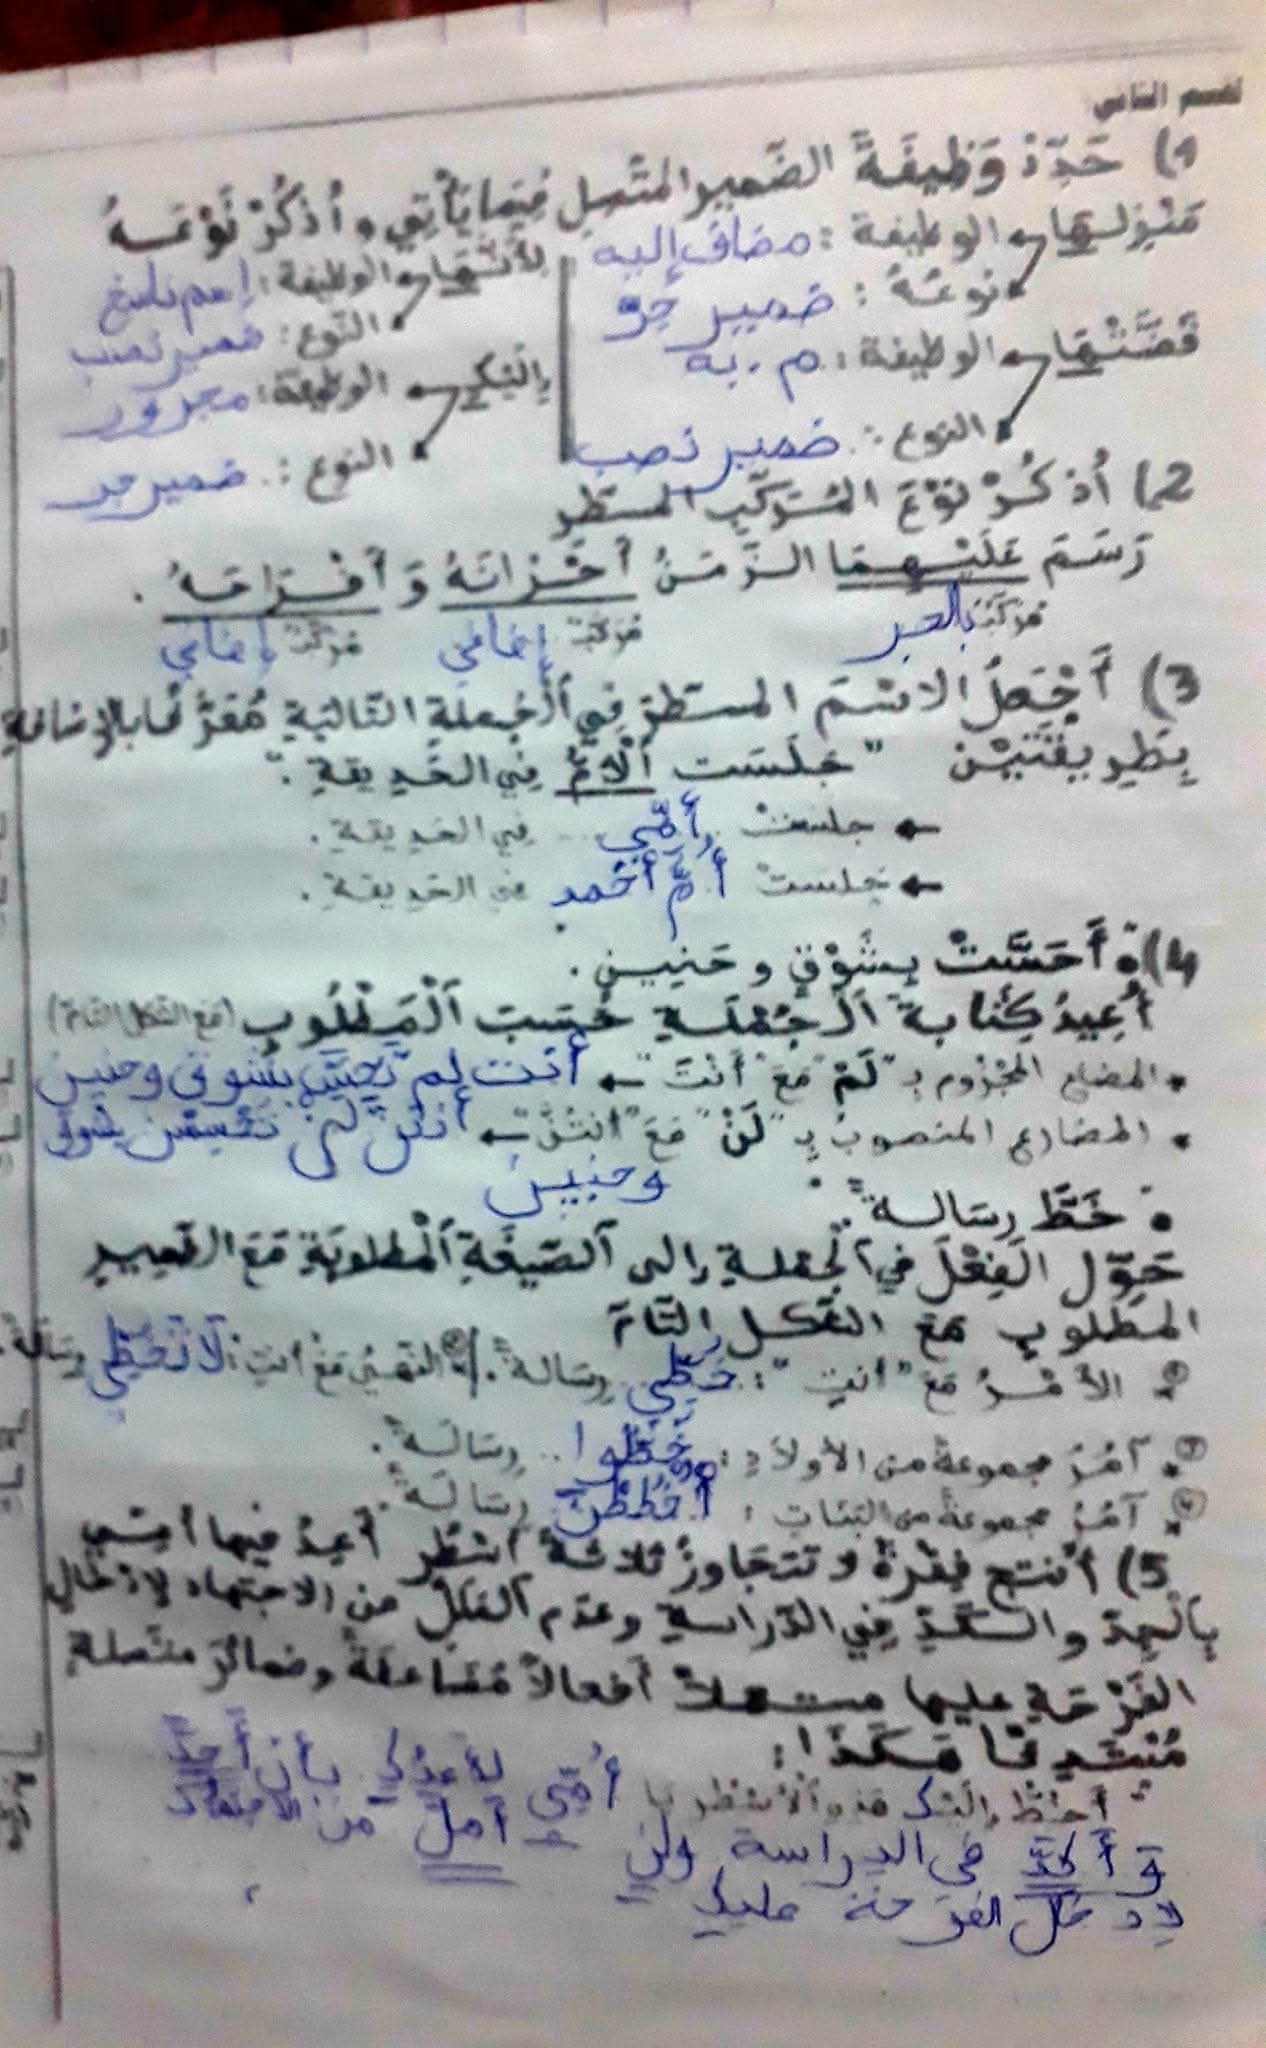 القسم الثاني
1) حَدِّدْ وَظِيفَةَ الضّمير المتّصِلِ فِيمَا يَأْتِي وَ اُذْكُرْ نَوْعَهُ
مَنْزِلها ← الوظيفة : مضاف إليه
نوعُهُ : ضمير جرّ
ضَمَّتْها ← الوظيفة : م. به
النوع : ضمير نصب
لأنّها ← الوظيفة : إسم ناسخ
النّوع : ضمير نصب
إليكِ ← الوظيفة : مجرور
النوع : ضمير جر
2) أُذْكُرْ نَوْعَ المُرَكَّبِ المسطّر
رَسَمَ عَلَيْهِمَا الزَّمَنُ أَحْزانَهُ وَ أَفْرَاحَهُ .
مُرَكّبٌ بالجر مُرَكّبٌ إضافي مُرَكّبٌ إضافي
3) أَجْعَلُ الاسْمَ المسَطّرَ فِي الْجُملَةِ التّالية مُعَرَّفًا بالإضافة
بِطَرِيقَتَيْن " جَلَسَت الْأُمُّ في الحَدِيقَةِ ".
← جلستْ أُمِّي في الحَدِيقَةِ .
← جَلستْ أُمُّ أَحْمد في الحَدِيقَةِ .
4) • أَحَسَّتْ بِشَوْقٍ و حَنِينٍ .
أُعِيدُ كِتَابةَ الْجُمْلَةِ حَسَبَ الْمَطْلُوبِ (مع الشّكل التّام)
• المضارع المجْزوم بـ "لَمْ" مَعَ "أَنْتَ" ← أنت لم تُحِسَّ بشوق وحنين
• المضارع المنصوب بـ "لَنْ" مَعَ "أَنْتُنَّ" ← أنتنّ لَنْ تحْسِسْن بشوق
وحنين
• خَطَّ رِسَالةً .
حَوِّل الفِعْلَ في الجُملة إلى الصّيغَةِ الْمطلوبَةِ مَعَ الضّمير
المطلوب مَعَ الشّكل التّام
• الأمْرُ مَعَ "أنتِ" : خُطِّي رِسَالةً . / • النّهْيُ مَعَ أنتِ : لَا تَخُطِّي رسالة .
• آمُرُ مجموعةً من الأولاد : خُطُّوا رِسَالَةً .
• آمُرُ مجموعةً من البَنَاتِ : أُخْطُطْنَ رِسَالَةً .
5) أُنتج فِقْرةً لا تتجَاوزُ ثلاثَةَ أسْطُر أعِدُ فيها أمّي
بِالْجِدّ والْكَدّ في الدّراسةِ وعدَم الْمَلَلِ من الاجتهاد لإدْخال
الفَرْحَةِ عليها مستعملاً أفعالاً مُضَاعفَةً و ضمائرَ متّصلة
مُبْتَدِئًا هَكَذَا :
" أخُطُّ إليْكِ هذه الأسْطر يا أُمِّي لأعِدُكِ بأن أَجِدَّ
وَ أَكدَّ في الدراسة ولن أملّ من الاجتهاد
لإدخال الفرحة عليك